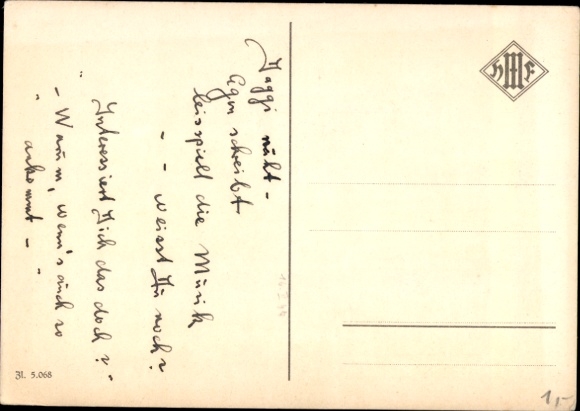 Jaggi näht -
Agon schreibt
leis spielt die Musik
- - weisst Du noch?
Interessiert Dich das doch? -
- Warum, wenn's auch so
ankommt -
HMF
Zl. 5.068
1,-